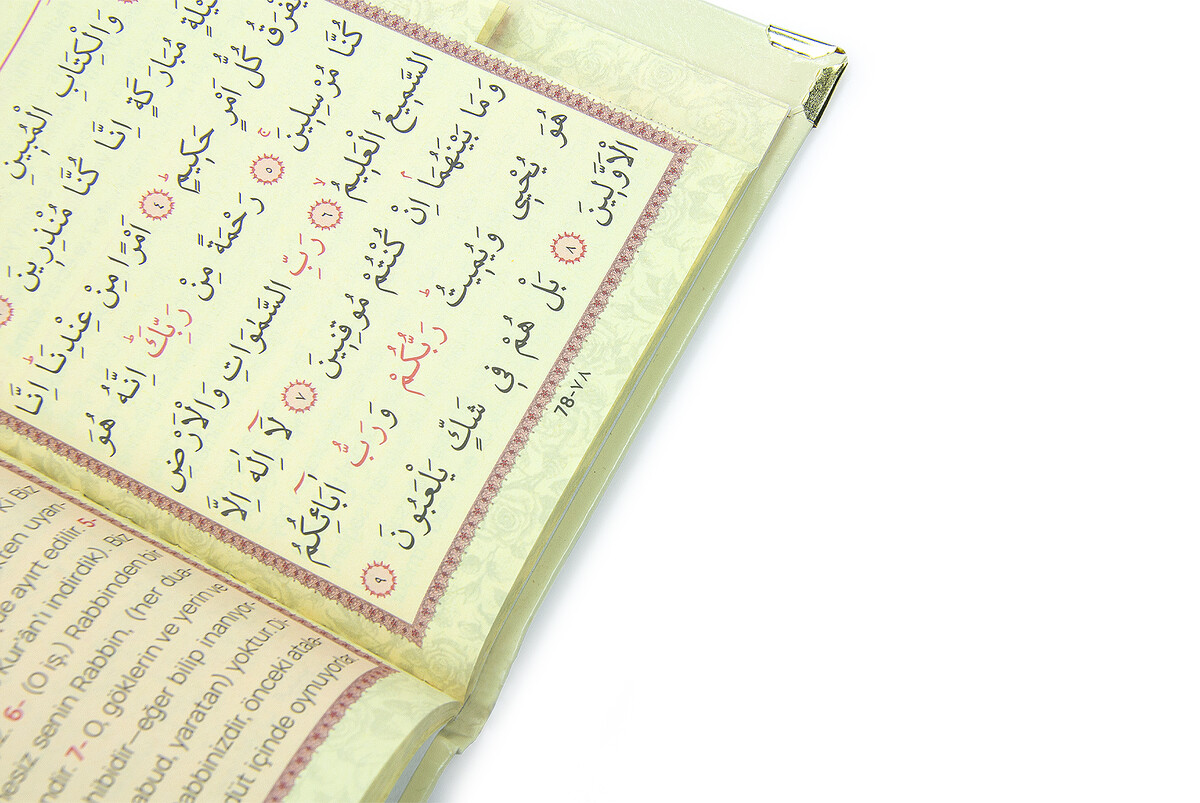 وَالْكِتَابِ الْمُبِينِ
مُبَارَكَةٍ اِنَّا كُنَّا مُنْذِرِينَ
كُلُّ اَمْرٍ حَكِيمٍ ٤ اَمْرًا مِنْ عِنْدِنَاۜ اِنَّا
كُنَّا مُرْسِلِينَۚ ٥ رَحْمَةً مِنْ رَبِّكَۜ اِنَّهُ هُوَ
السَّمِيعُ الْعَلِيمُۙ ٦ رَبِّ السَّمٰوَاتِ وَالْاَرْضِ
وَمَا بَيْنَهُمَاۢ اِنْ كُنْتُمْ مُوقِنِينَ ٧ لَٓا اِلٰهَ اِلَّا
هُوَ يُحْيِى وَيُمِيتُۜ رَبُّكُمْ وَرَبُّ اٰبَٓائِكُمُ
الْاَوَّلِينَ ٨ بَلْ هُمْ فِى شَكٍّ يَلْعَبُونَ ٩
78-٧٨
Ki Biz
uyan-
de ayırt edilir. 5-
Kur'ân'ı indirdik). Biz
6- (O iş,) Rabbinden bir
senin Rabbin, (her dua-
7- O, göklerin ve yerin ve
eğer bilip inanıyor-
yaratan) yoktur. Di-
önceki atala-
içinde oynuyorlar.